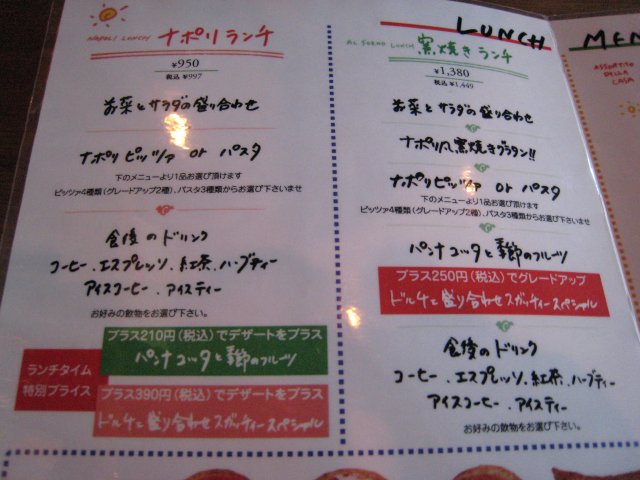 NAPOLI LUNCH ナポリランチ
¥950
税込 ¥997
お菜とサラダの盛り合わせ
ナポリピッツァ or パスタ
下のメニューより1品お選び頂けます
ピッツァ4種類(グレードアップ2種)、パスタ3種類からお選び下さいませ
食後のドリンク
コーヒー、エスプレッソ、紅茶、ハーブティー
アイスコーヒー、アイスティー
お好みの飲物をお選び下さい。
ランチタイム
特別プライス
プラス210円(税込)でデザートをプラス
パンナコッタと季節のフルーツ
プラス390円(税込)でデザートをプラス
ドルチェ盛り合わせスガッティースペシャル
LUNCH
AL FORNO LUNCH 窯焼きランチ
¥1,380
税込 ¥1,449
お菜とサラダの盛り合わせ
ナポリ風窯焼きグラタン!!
ナポリピッツァ or パスタ
下のメニューより1品お選び頂けます
ピッツァ4種類(グレードアップ2種)、パスタ3種類からお選び下さいませ
パンナコッタと季節のフルーツ
プラス250円(税込)でグレードアップ
ドルチェ盛り合わせスガッティースペシャル
食後のドリンク
コーヒー、エスプレッソ、紅茶、ハーブティー
アイスコーヒー、アイスティー
お好みの飲物をお選び下さい。
MEN
ASSORTITO
DELLA
CASA